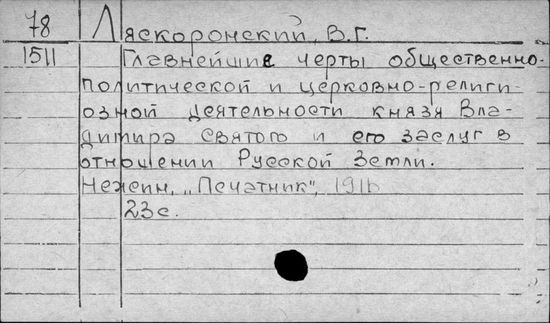 78 Ляскоронский, В.Г.
1511 Главнейшие черты общественно-
политической и церковно-религи-
озной деятельности князя Вла-
димира Святого и его заслуг в
отношении Русской Земли.
Нежин, "Печатник", 1916
23с.